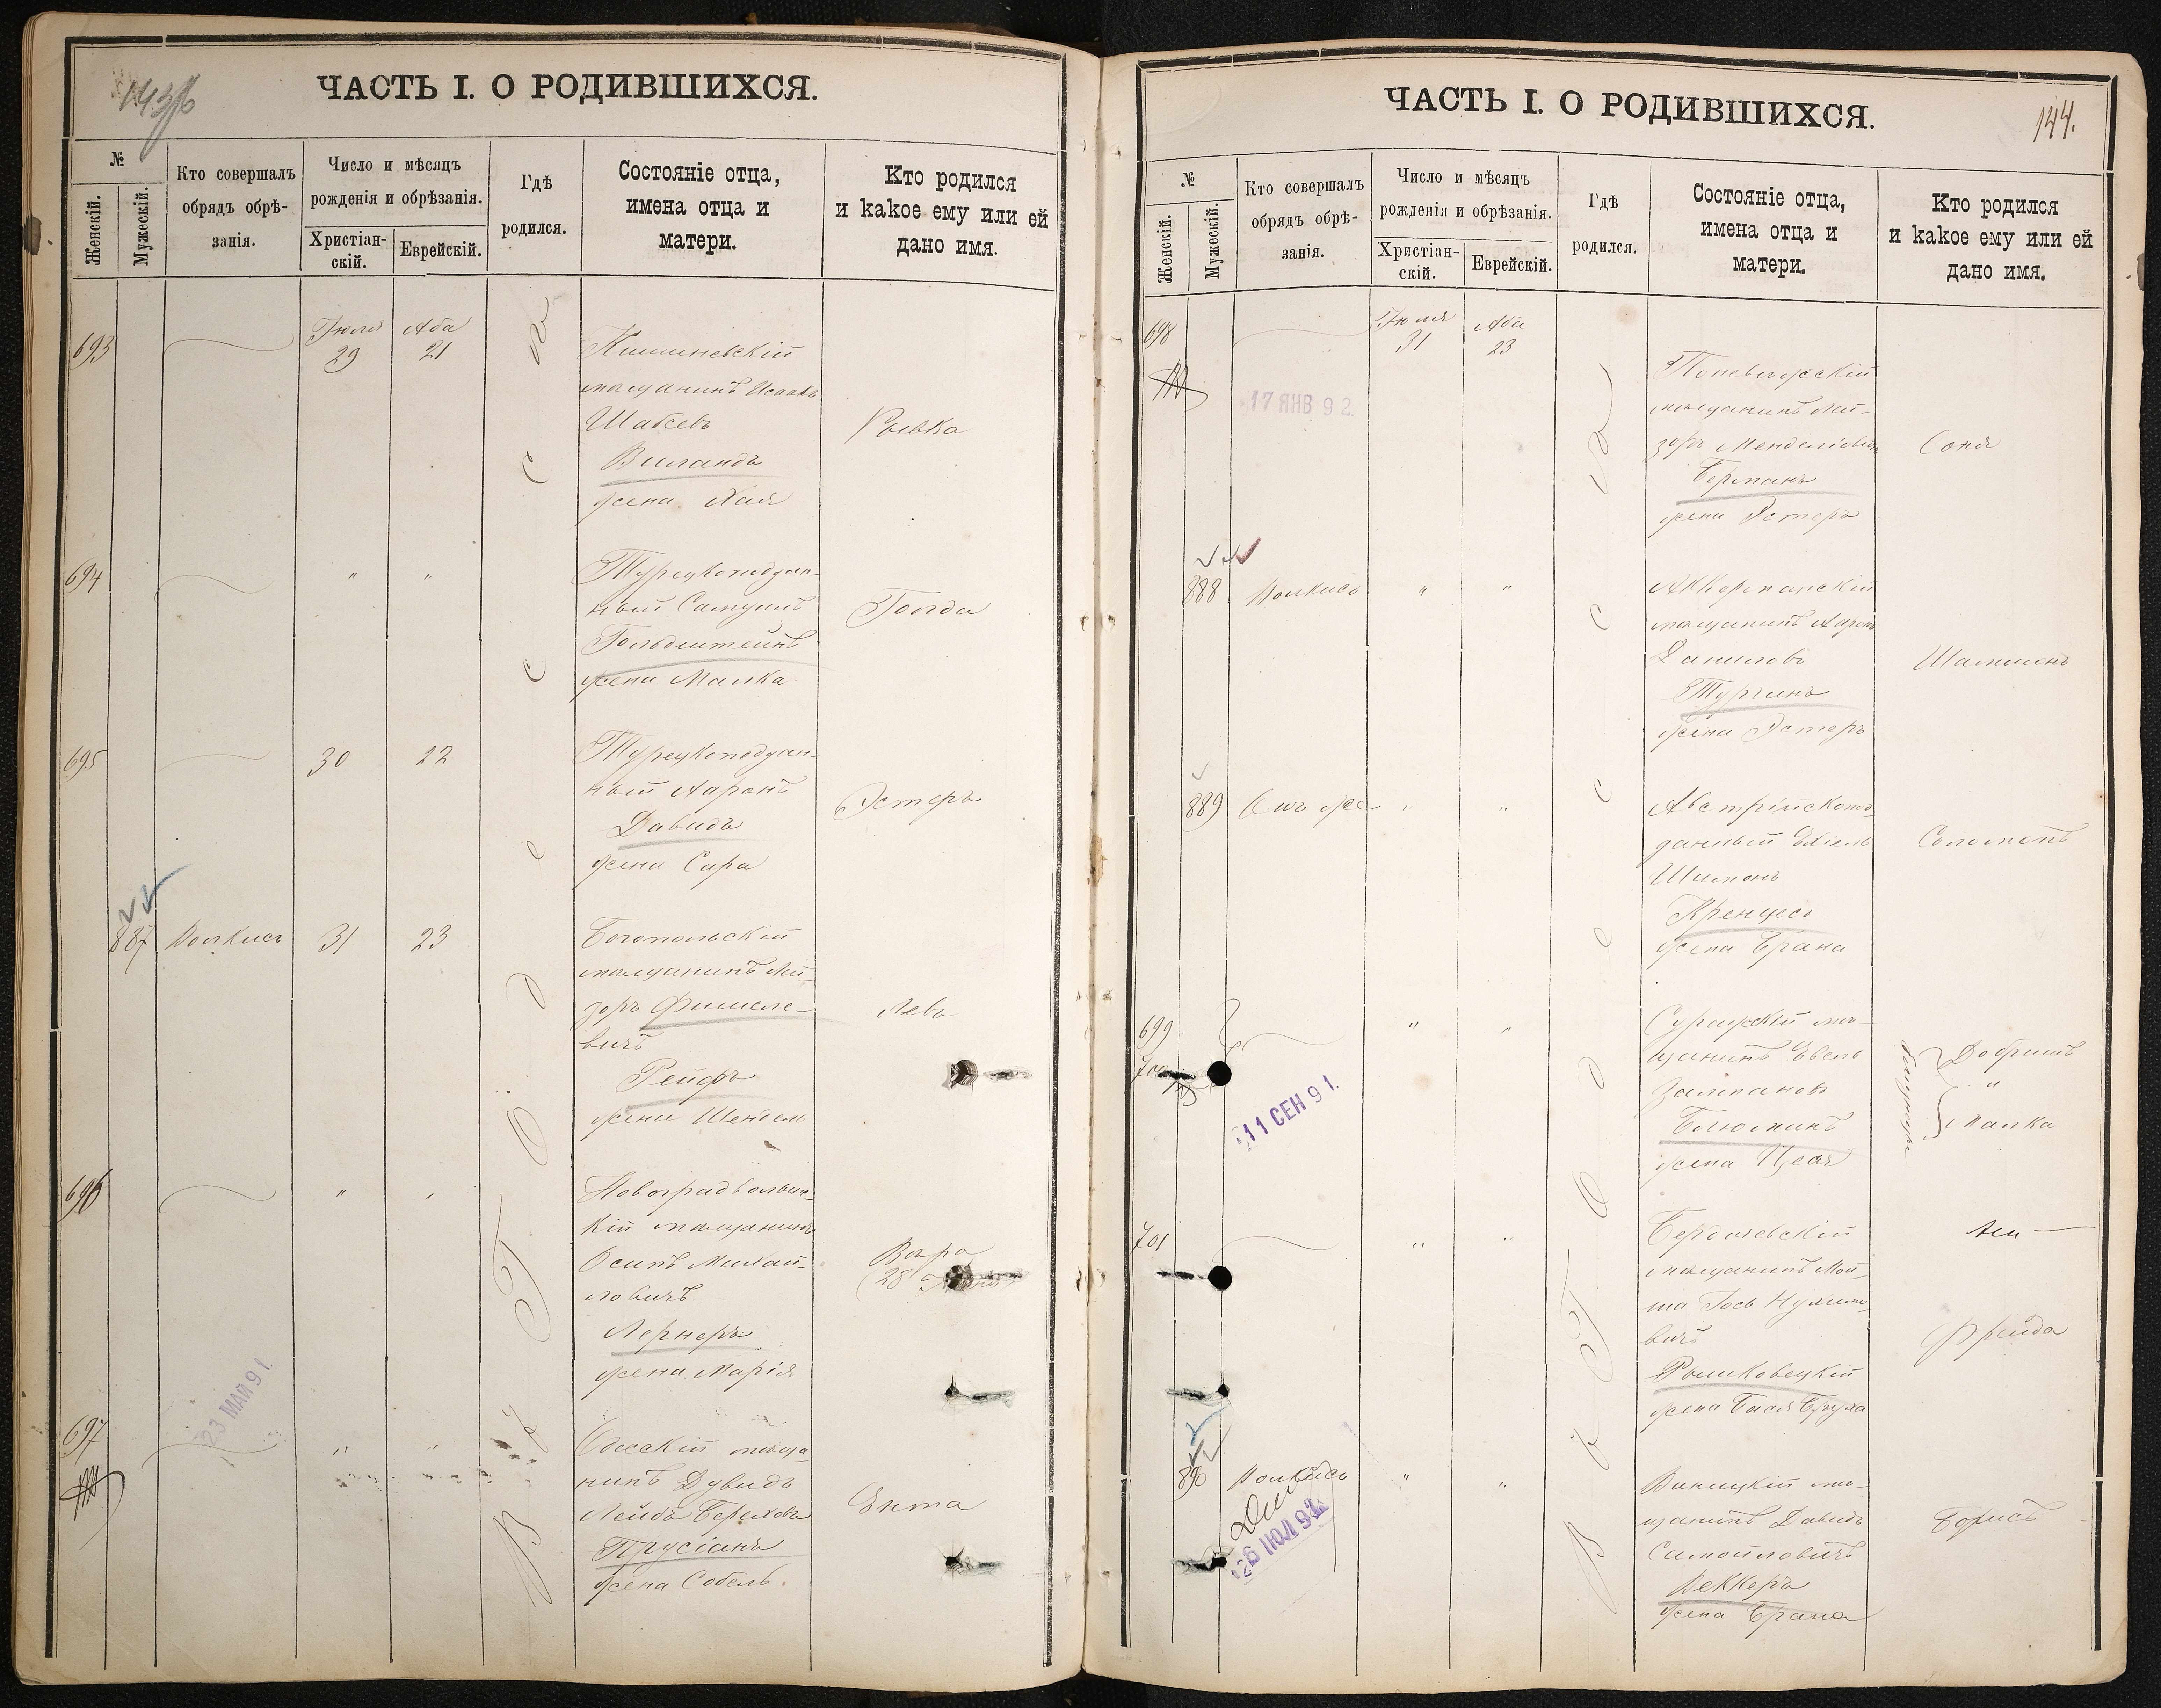 143об
ЧАСТЬ I. О РОДИВШИХСЯ.
№
Женскій.
Мужескій.
Кто совершалъ
обрядъ обрѣ-
занія.
Число и мѣсяцъ
рожденія и обрѣзанія.
Христіан-
скій.
Еврейскій.
Гдѣ
родился.
Состояніе отца,
имена отца и
матери.
Кто родился
и какое ему или ей
дано имя.
693
Іюля
29
Аба
21
Кишиневскій
мѣщанинъ Исаакъ
Шабсевъ
Виландъ
жена Хая
Ривка
694
" "
Турецкоподдан-
ный Самуилъ
Гольдштейнъ
жена Малка
Голда
695
30
22
Турецкоподдан-
ный Ааронъ
Давидъ
жена Сара
Эстеръ
887
Волкисъ
31
23
Богопольскій
мѣщанинъ Лей-
зоръ Фишеле-
вичъ
Рейфъ
жена Шендель
Левъ
696
" "
Новоградволын-
кій мѣщанинъ
Осипъ Михай-
ловичъ
Лернеръ
жена Марія
Вѣра
23 МАЙ 91.
697
" "
Одесскій мѣща
нинъ Дувидъ
Лейбъ Берковъ
Прусіанъ
жена Собель.
Ента
Въ Одессѣ
ЧАСТЬ I. О РОДИВШИХСЯ.
144.
№
Женскій.
Мужескій.
Кто совершалъ
обрядъ обрѣ-
занія.
Число и мѣсяцъ
рожденія и обрѣзанія.
Христіан-
скій.
Еврейскій.
Гдѣ
родился.
Состояніе отца,
имена отца и
матери.
Кто родился
и какое ему или ей
дано имя.
698
Іюля
31
Аба
23
17 ЯНВ 92.
мѣщанинъ Лей-
зоръ Менделевичъ
Берманъ
жена Эстеръ
Соня
888
Волкисъ
" "
Аккерманскій
мѣщанинъ Ааронъ
Даниловъ
Турчинъ
жена Эстеръ
889
Онъ же
" "
Австрійскопод-
данный Ехіель
Шимонъ
Кренцесъ
жена Брана
Соломонъ
699
700
" "
11 СЕН 91.
Суражскій мѣ-
щанинъ Евель
Залмановъ
Блюминъ
жена Цеся
близнецы
Добришъ
"
Малка
701
" "
Бердичевскій
мѣщанинъ Мой-
ша Іось Нухимо-
вичъ
жена Бася Бруха
Фрейда
890
Волкисъ
" "
26 ІЮЛ 92.
Виницкій мѣ-
щанинъ Давидъ
Самойловичъ
Веккеръ
жена Брана
Борисъ